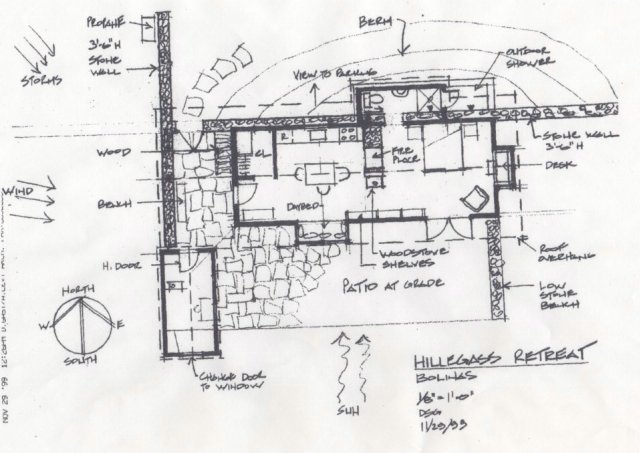 PROPANE
3'-6" H
STONE
WALL
STORMS
WOOD
WIND
BENCH
H. DOOR
NORTH
W
E
SOUTH
BERM
VIEW TO PARKING
OUTDOOR
SHOWER
R
CL
FIRE
PLACE
DAYBED
STONE WALL
3'-6" H
DESK
ROOF
OVERHANG
WOODSTOVE
SHELVES
PATIO AT GRADE
LOW
STONE
BENCH
CHANGE DOOR
TO WINDOW
SUN
HILLEGASS RETREAT
BOLINAS
1/8" = 1'-0"
DSG
11/29/99
NOV 29 '99